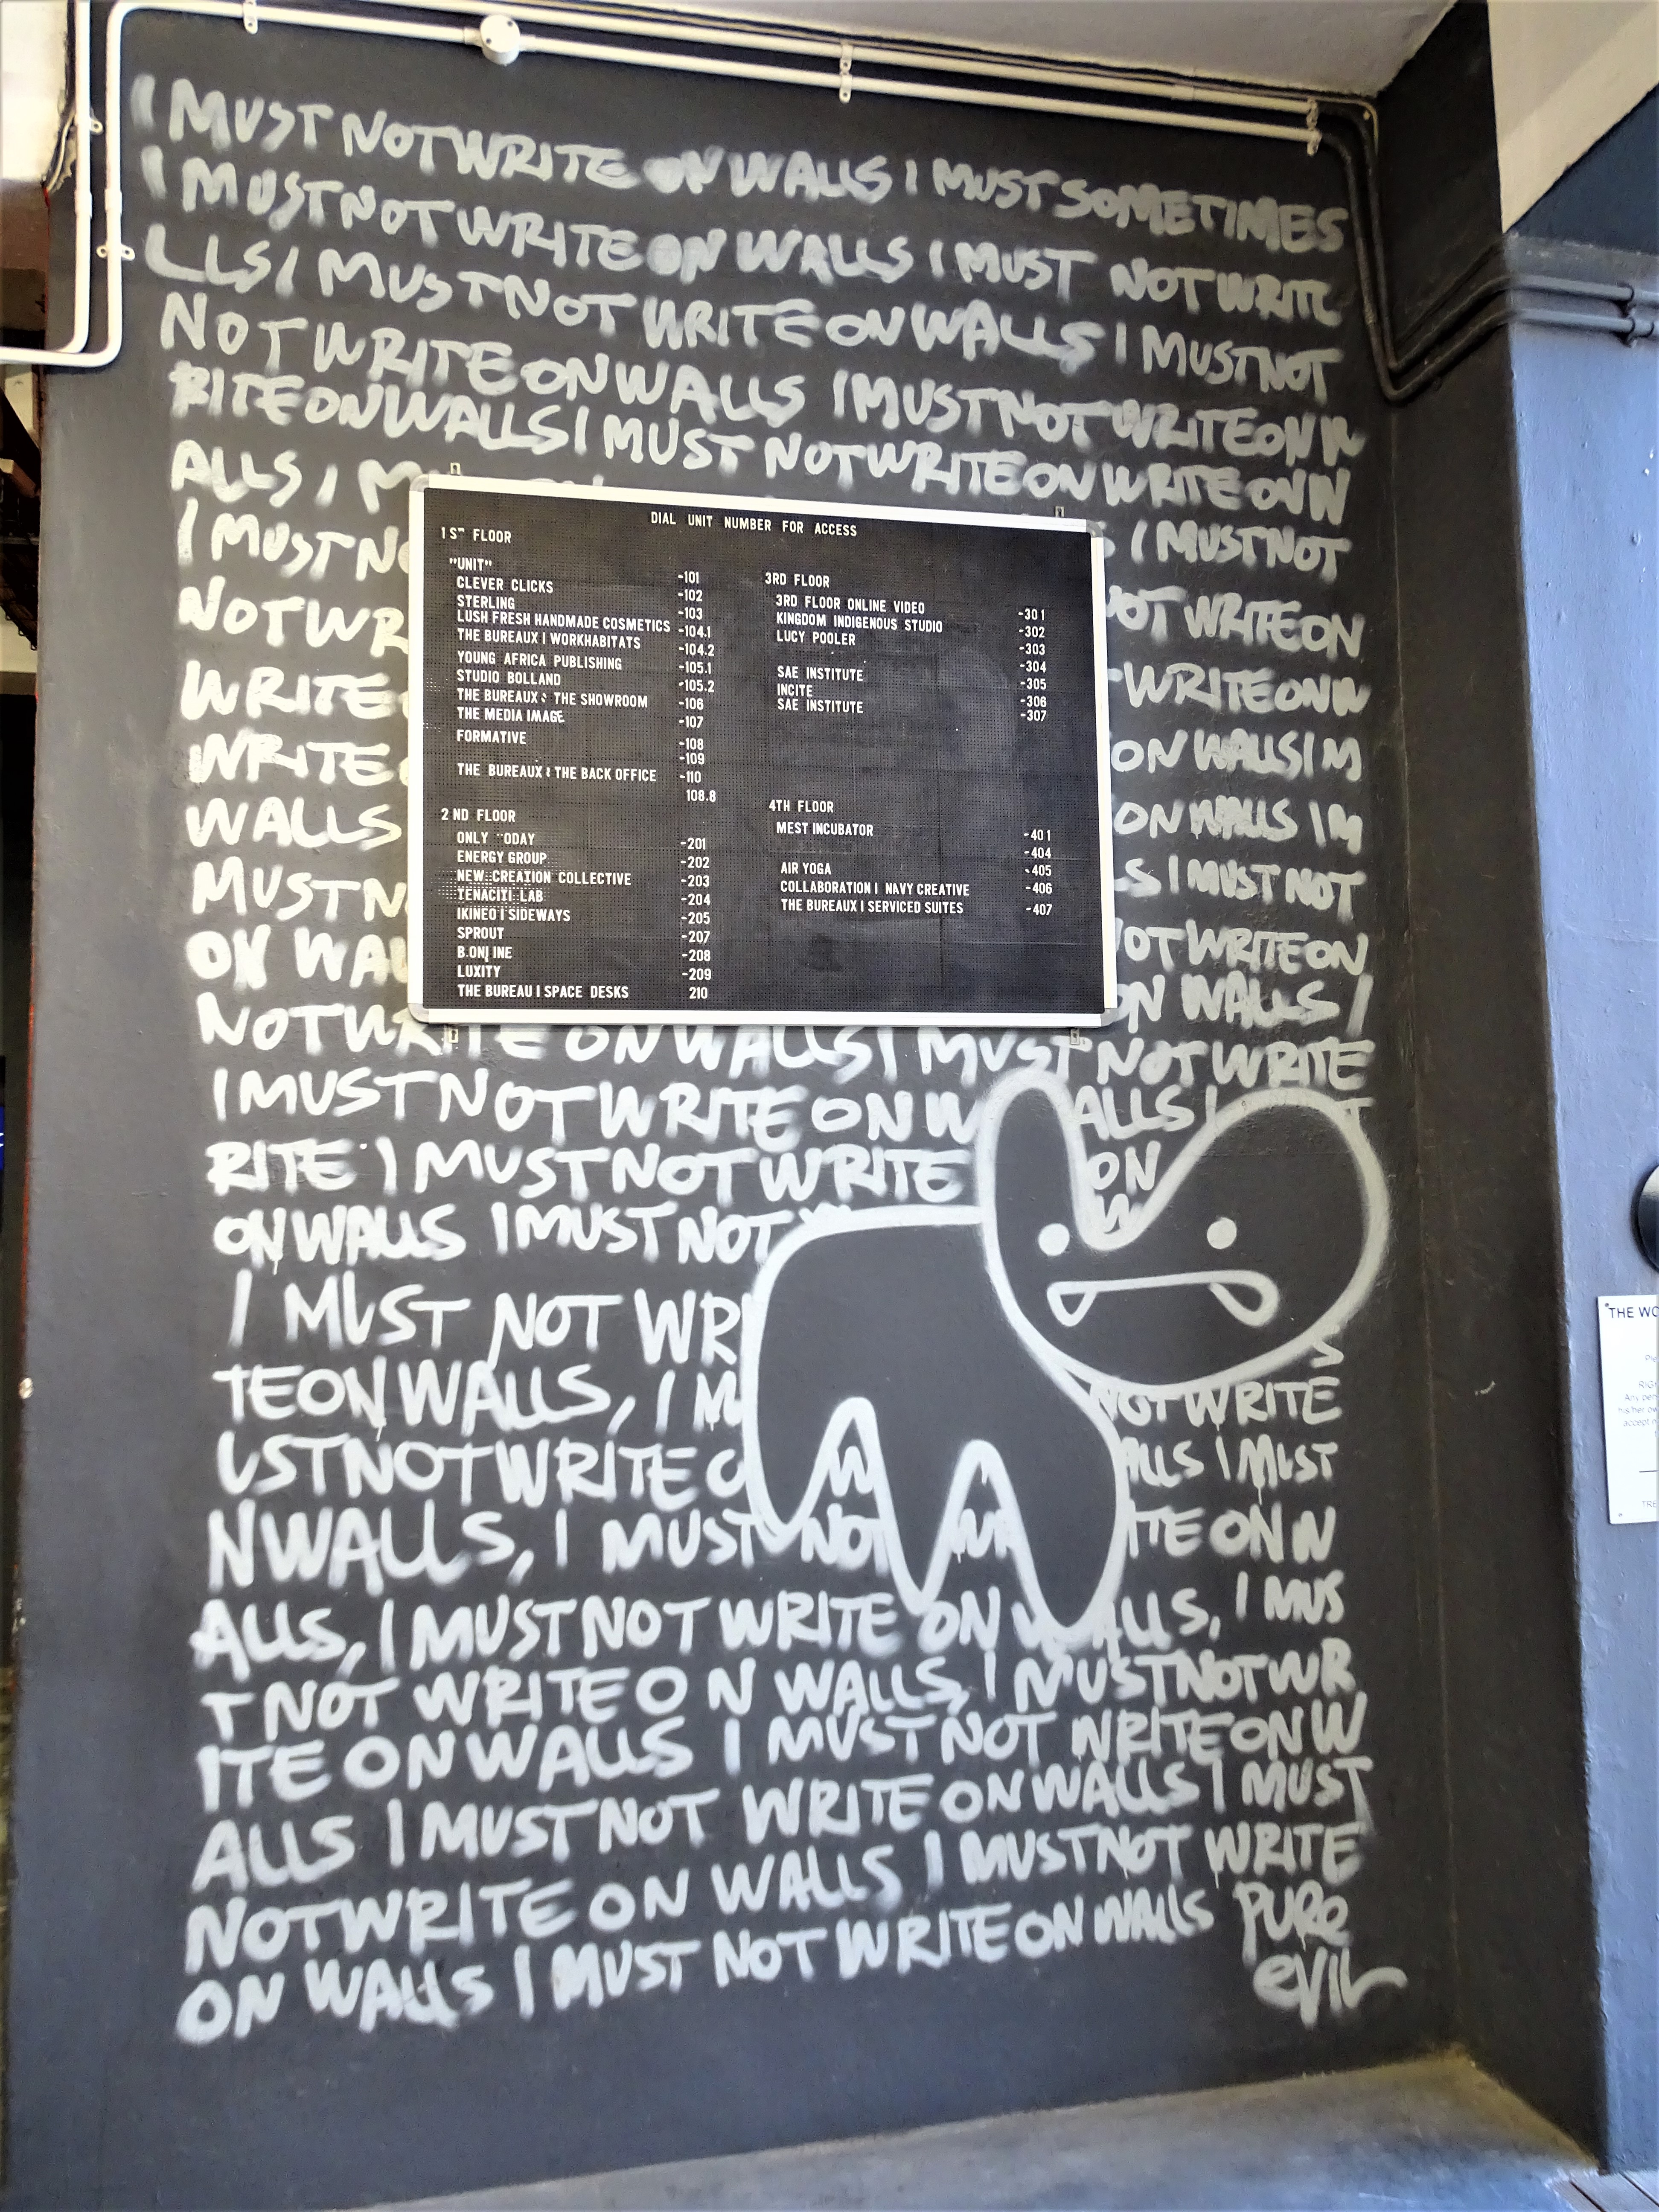 I MUST NOT WRITE ON WALLS I MUST SOMETIMES
I MUST NOT WRITE ON WALLS I MUST NOT WRITE
LLS I MUST NOT WRITE ON WALLS I MUST NOT
NOT WRITE ON WALLS I MUST NOT WRITE ON W
RITE ON WALLS I MUST NOT WRITE ON WRITE ON W
ALLS I M
I MUST NO
I MUST NOT
NOT WR
NOT WRITE ON
WRITE
WRITE ON W
WRITE
ON WALLS I M
WALLS
ON WALLS I M
MUST N
S I MUST NOT
ON WAL
NOT WRITE ON
ON WALLS I
DIAL UNIT NUMBER FOR ACCESS
1ST FLOOR
"UNIT" -101
CLEVER CLICKS -102
STERLING -103
LUSH FRESH HANDMADE COSMETICS -104.1
THE BUREAUX | WORKHABITATS -104.2
YOUNG AFRICA PUBLISHING -105.1
STUDIO BOLLAND -105.2
THE BUREAUX : THE SHOWROOM -106
THE MEDIA IMAGE -107
FORMATIVE -108
-109
THE BUREAUX : THE BACK OFFICE -110
108.8
2 ND FLOOR
ONLY ODAY -201
ENERGY GROUP -202
NEW CREATION COLLECTIVE -203
TENACITI LAB -204
IKINEO | SIDEWAYS -205
SPROUT -207
B.ONLINE -208
LUXITY -209
THE BUREAU | SPACE DESKS 210
3RD FLOOR
3RD FLOOR ONLINE VIDEO -301
KINGDOM INDIGENOUS STUDIO -302
LUCY POOLER -303
-304
SAE INSTITUTE -305
INCITE -306
SAE INSTITUTE -307
4TH FLOOR
MEST INCUBATOR -401
-404
AIR YOGA -405
COLLABORATION | NAVY CREATIVE -406
THE BUREAUX | SERVICED SUITES -407
NOT WRITE ON WALLS I MUST NOT WRITE
I MUST NOT WRITE ON W ALLS I
RITE I MUST NOT WRITE ON
ON WALLS I MUST NOT W
I MUST NOT WRI
S
TE ON WALLS, I M NOT WRITE
UST NOT WRITE O W ALLS I MUST
N WALLS, I MUST NOT WR ITE ON W
ALLS, I MUST NOT WRITE ON WALLS, I MUS
T NOT WRITE ON WALLS, I MUST NOT WR
ITE ON WALLS I MUST NOT WRITE ON W
ALLS I MUST NOT WRITE ON WALLS I MUST
NOT WRITE ON WALLS I MUST NOT WRITE
ON WALLS I MUST NOT WRITE ON WALLS PURE
EVIL
THE WO